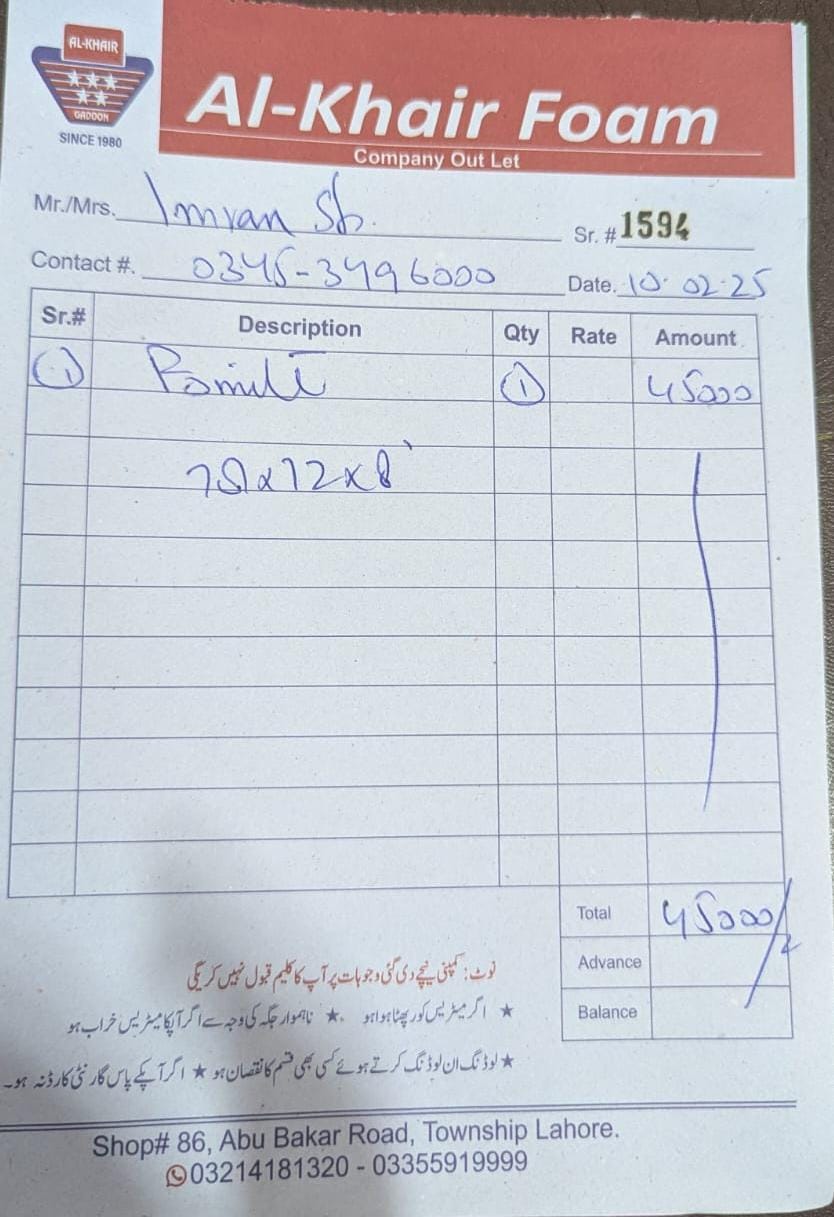 AL-KHAIR
GADOON
SINCE 1980
Al-Khair Foam
Company Out Let
Mr./Mrs. Imran Sb.
Sr. # 1594
Contact #. 0345-3496000
Date. 10.02.25
Sr.# Description Qty Rate Amount
1 1 45000
78x72x8
Total 45000/
Advance
Balance
نوٹ: کمپنی نیچے دی گئی وجوہات پر آپ کا کلیم قبول نہیں کریگی
★ اگر میٹریس کور پھٹا ہوا ہو ★ ناہموار جگہ کی وجہ سے اگر آپکا میٹریس خراب ہو
★ لوڈنگ ان لوڈنگ کرتے ہوئے کسی بھی قسم کا نقصان ہو ★ اگر آپکے پاس گارنٹی کارڈ نہ ہو۔
Shop# 86, Abu Bakar Road, Township Lahore.
03214181320 - 03355919999